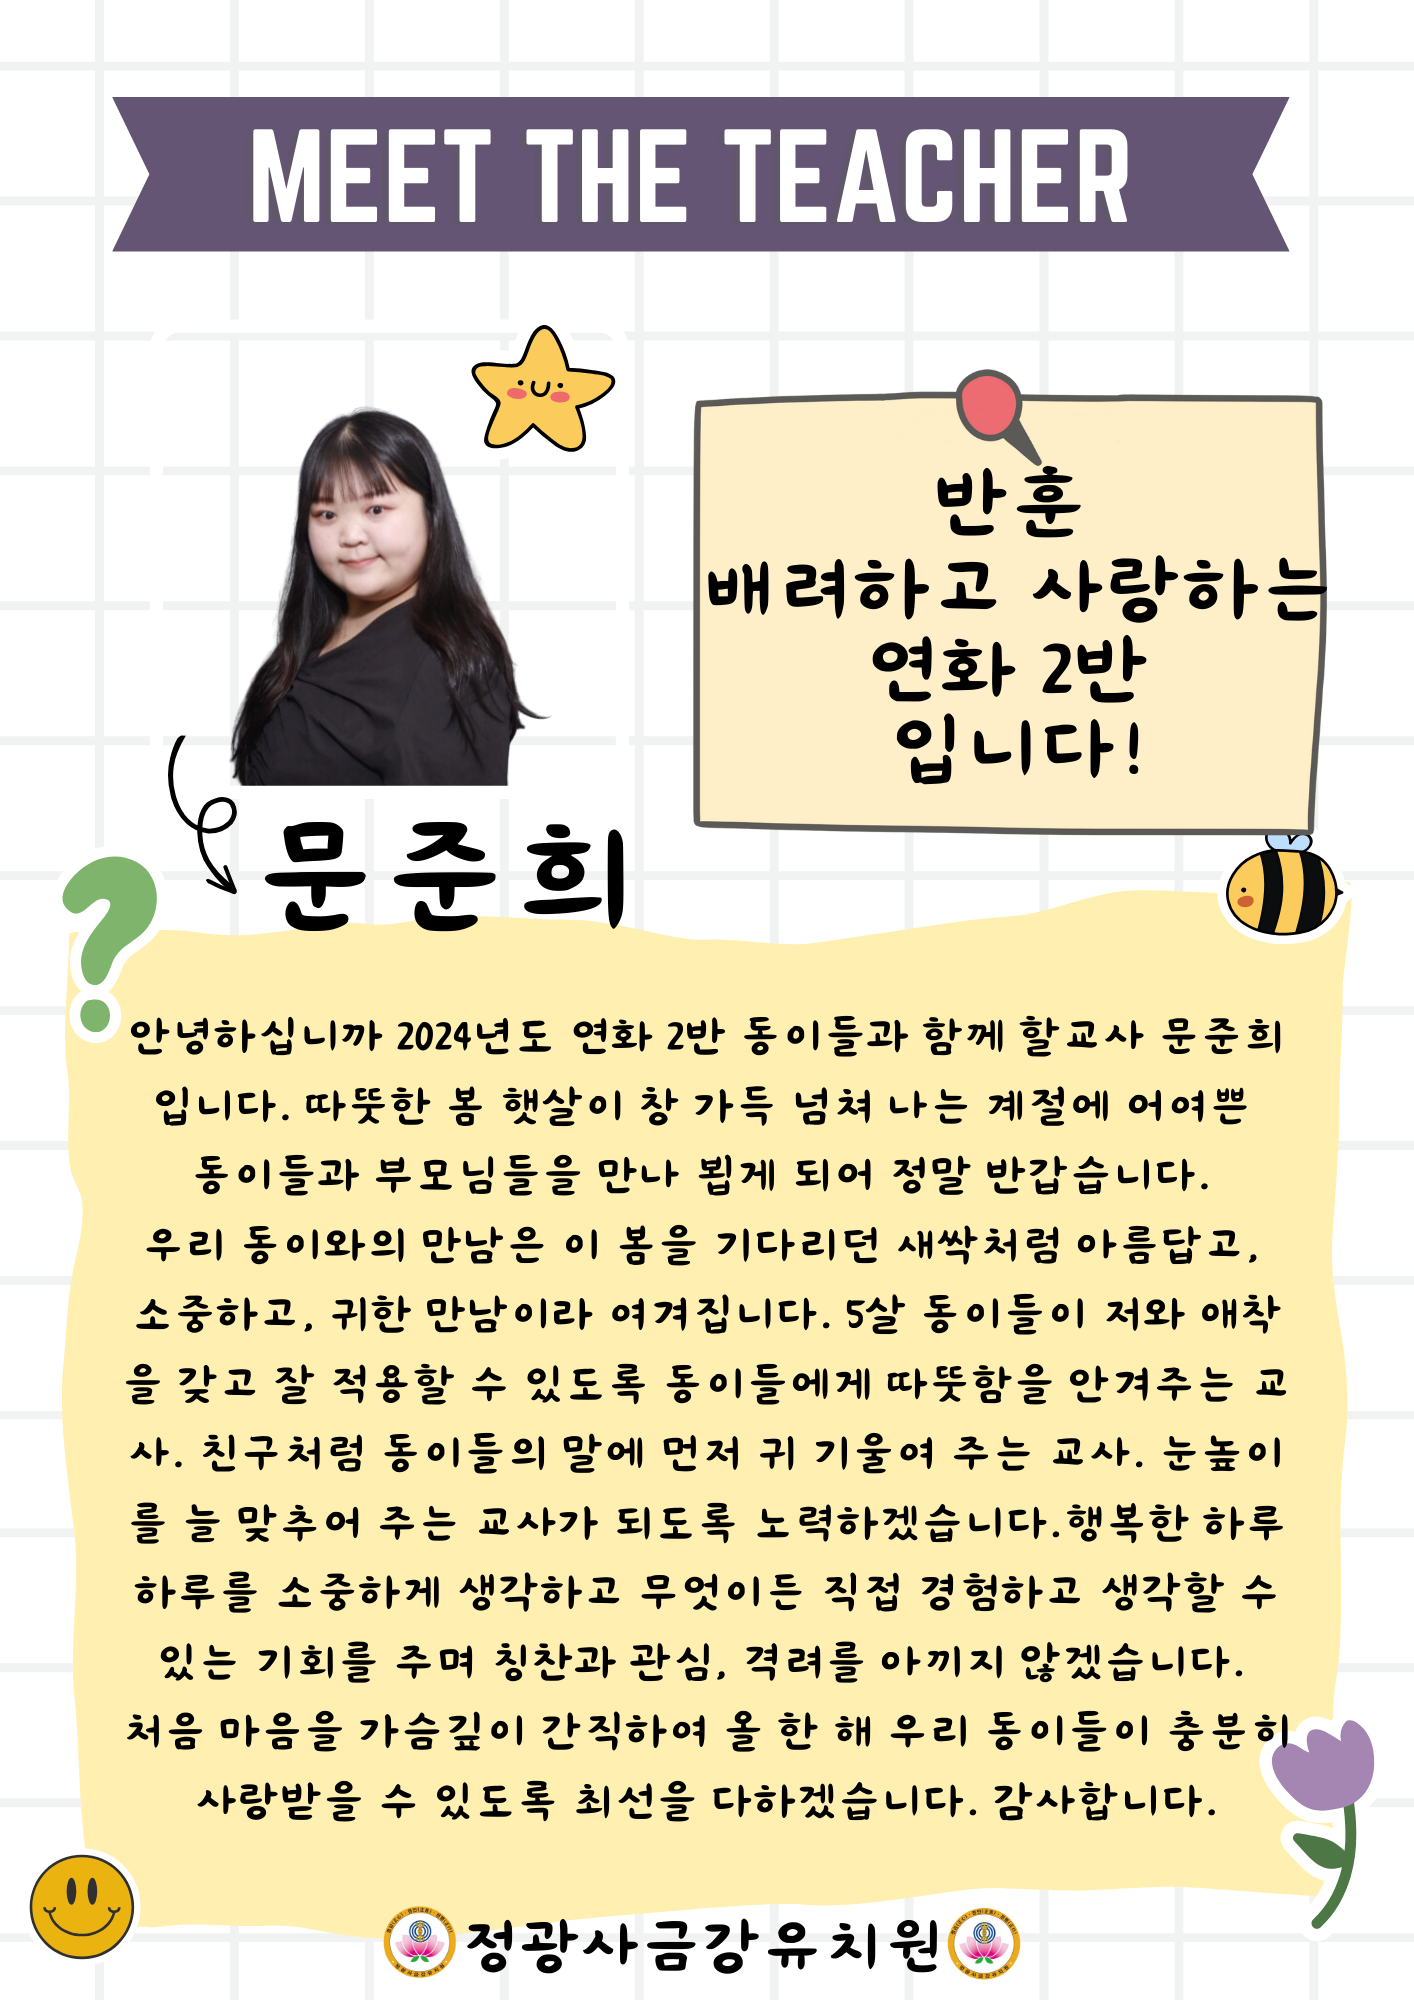 MEET THE TEACHER
반훈
배려하고 사랑하는
연화 2반
입니다!
문준희
안녕하십니까 2024년도 연화 2반 동이들과 함께 할교사 문준희
입니다. 따뜻한 봄 햇살이 창 가득 넘쳐 나는 계절에 어여쁜
동이들과 부모님들을 만나 뵙게 되어 정말 반갑습니다.
우리 동이와의 만남은 이 봄을 기다리던 새싹처럼 아름답고,
소중하고, 귀한 만남이라 여겨집니다. 5살 동이들이 저와 애착
을 갖고 잘 적용할 수 있도록 동이들에게 따뜻함을 안겨주는 교
사. 친구처럼 동이들의 말에 먼저 귀 기울여 주는 교사. 눈높이
를 늘 맞추어 주는 교사가 되도록 노력하겠습니다.행복한 하루
하루를 소중하게 생각하고 무엇이든 직접 경험하고 생각할 수
있는 기회를 주며 칭찬과 관심, 격려를 아끼지 않겠습니다.
처음 마음을 가슴깊이 간직하여 올 한 해 우리 동이들이 충분히
사랑받을 수 있도록 최선을 다하겠습니다. 감사합니다.
정광사금강유치원